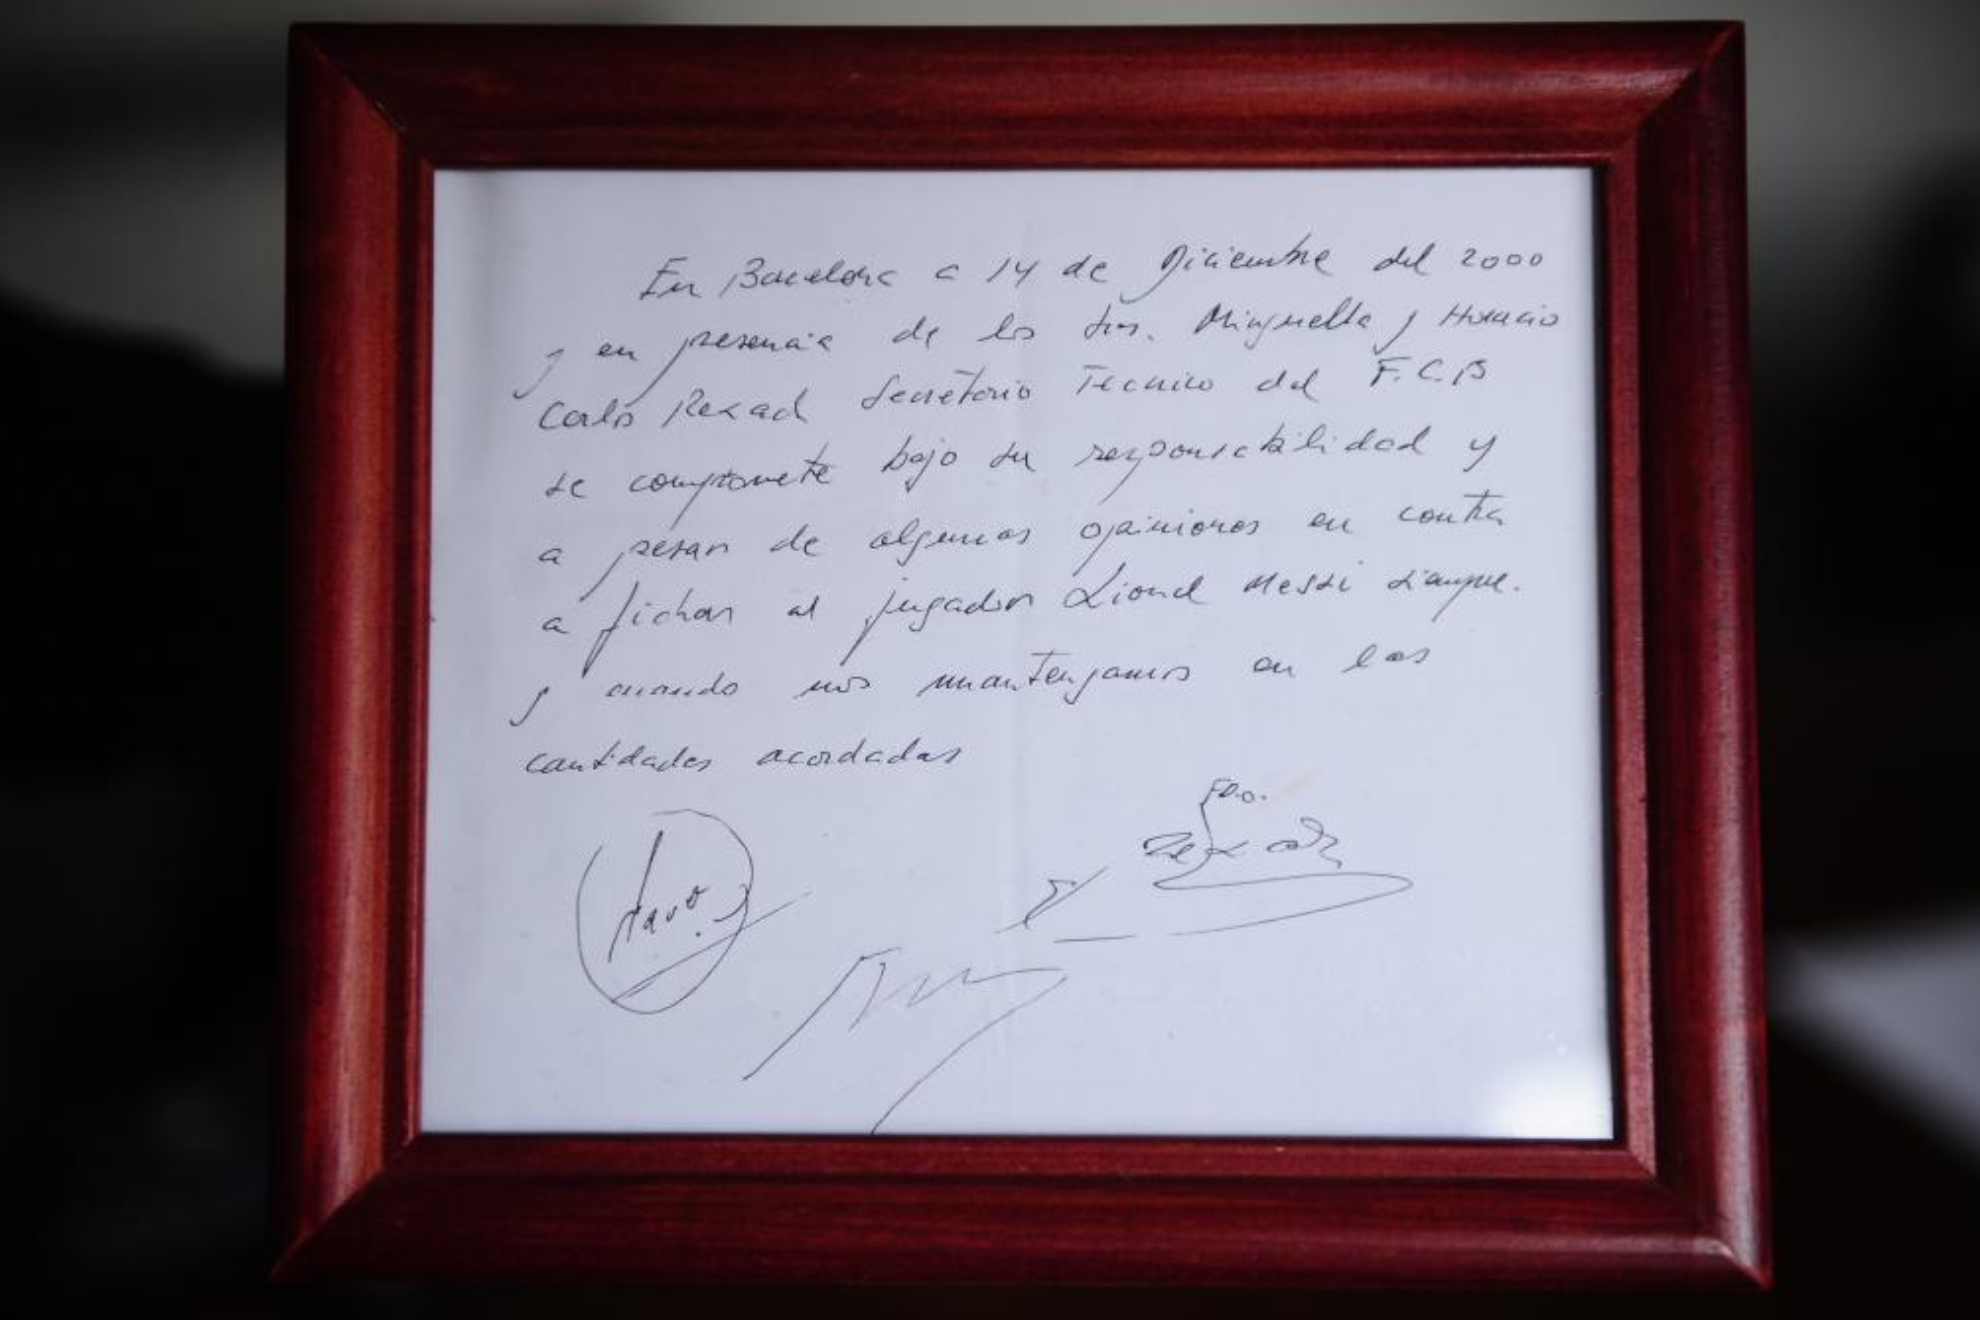 En Barcelona a 14 de Diciembre del 2000
y en presencia de los Srs. Minguella y Horacio
Carlos Rexach Secretario Tecnico del F.C.B
se compromete bajo su responsabilidad y
a pesar de algunas opiniones en contra
a fichar al jugador Lionel Messi siempre.
y cuando nos mantengamos en las
cantidades acordadas
Fdo.
Rexach